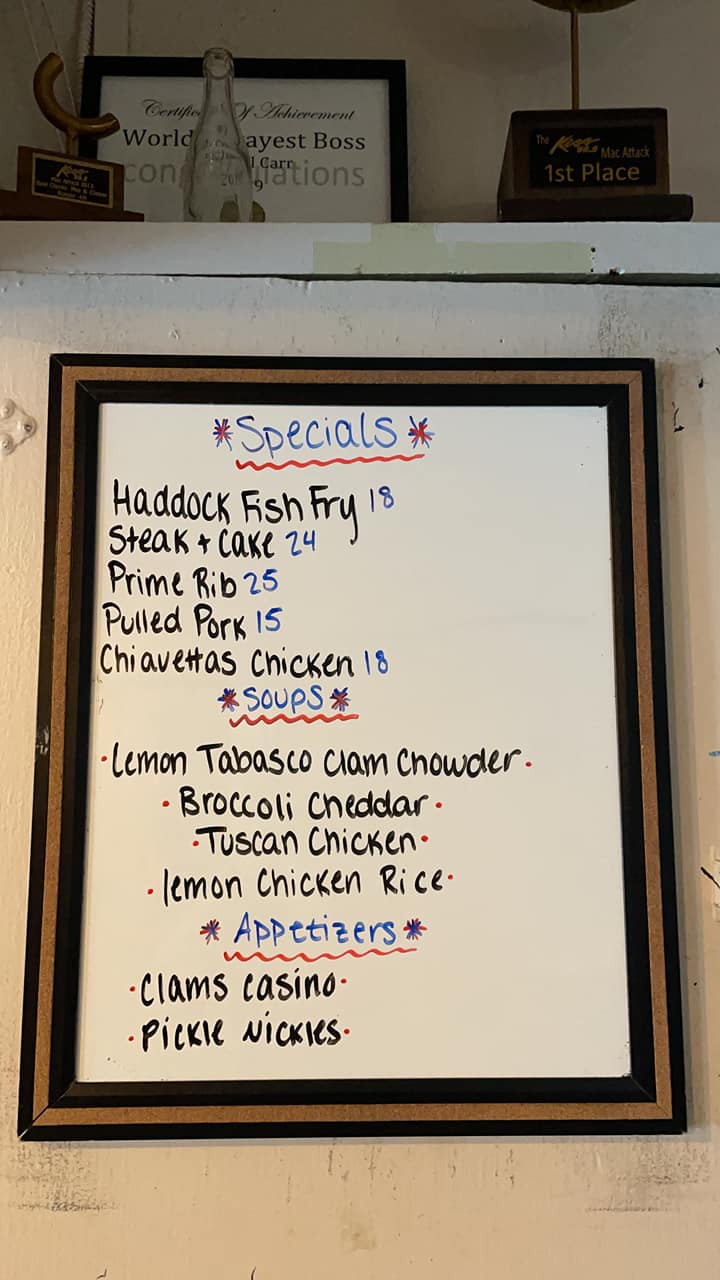 Certificate Of Achievement
World ayest Boss
l Carr
con lations
The Mac Attack
1st Place
*Specials*
Haddock Fish Fry 18
Steak + Cake 24
Prime Rib 25
Pulled Pork 15
Chiavettas Chicken 18
*Soups*
·Lemon Tabasco Clam Chowder·
·Broccoli Cheddar·
·Tuscan Chicken·
·lemon Chicken Rice·
*Appetizers*
·Clams Casino·
·Pickle Nickles·